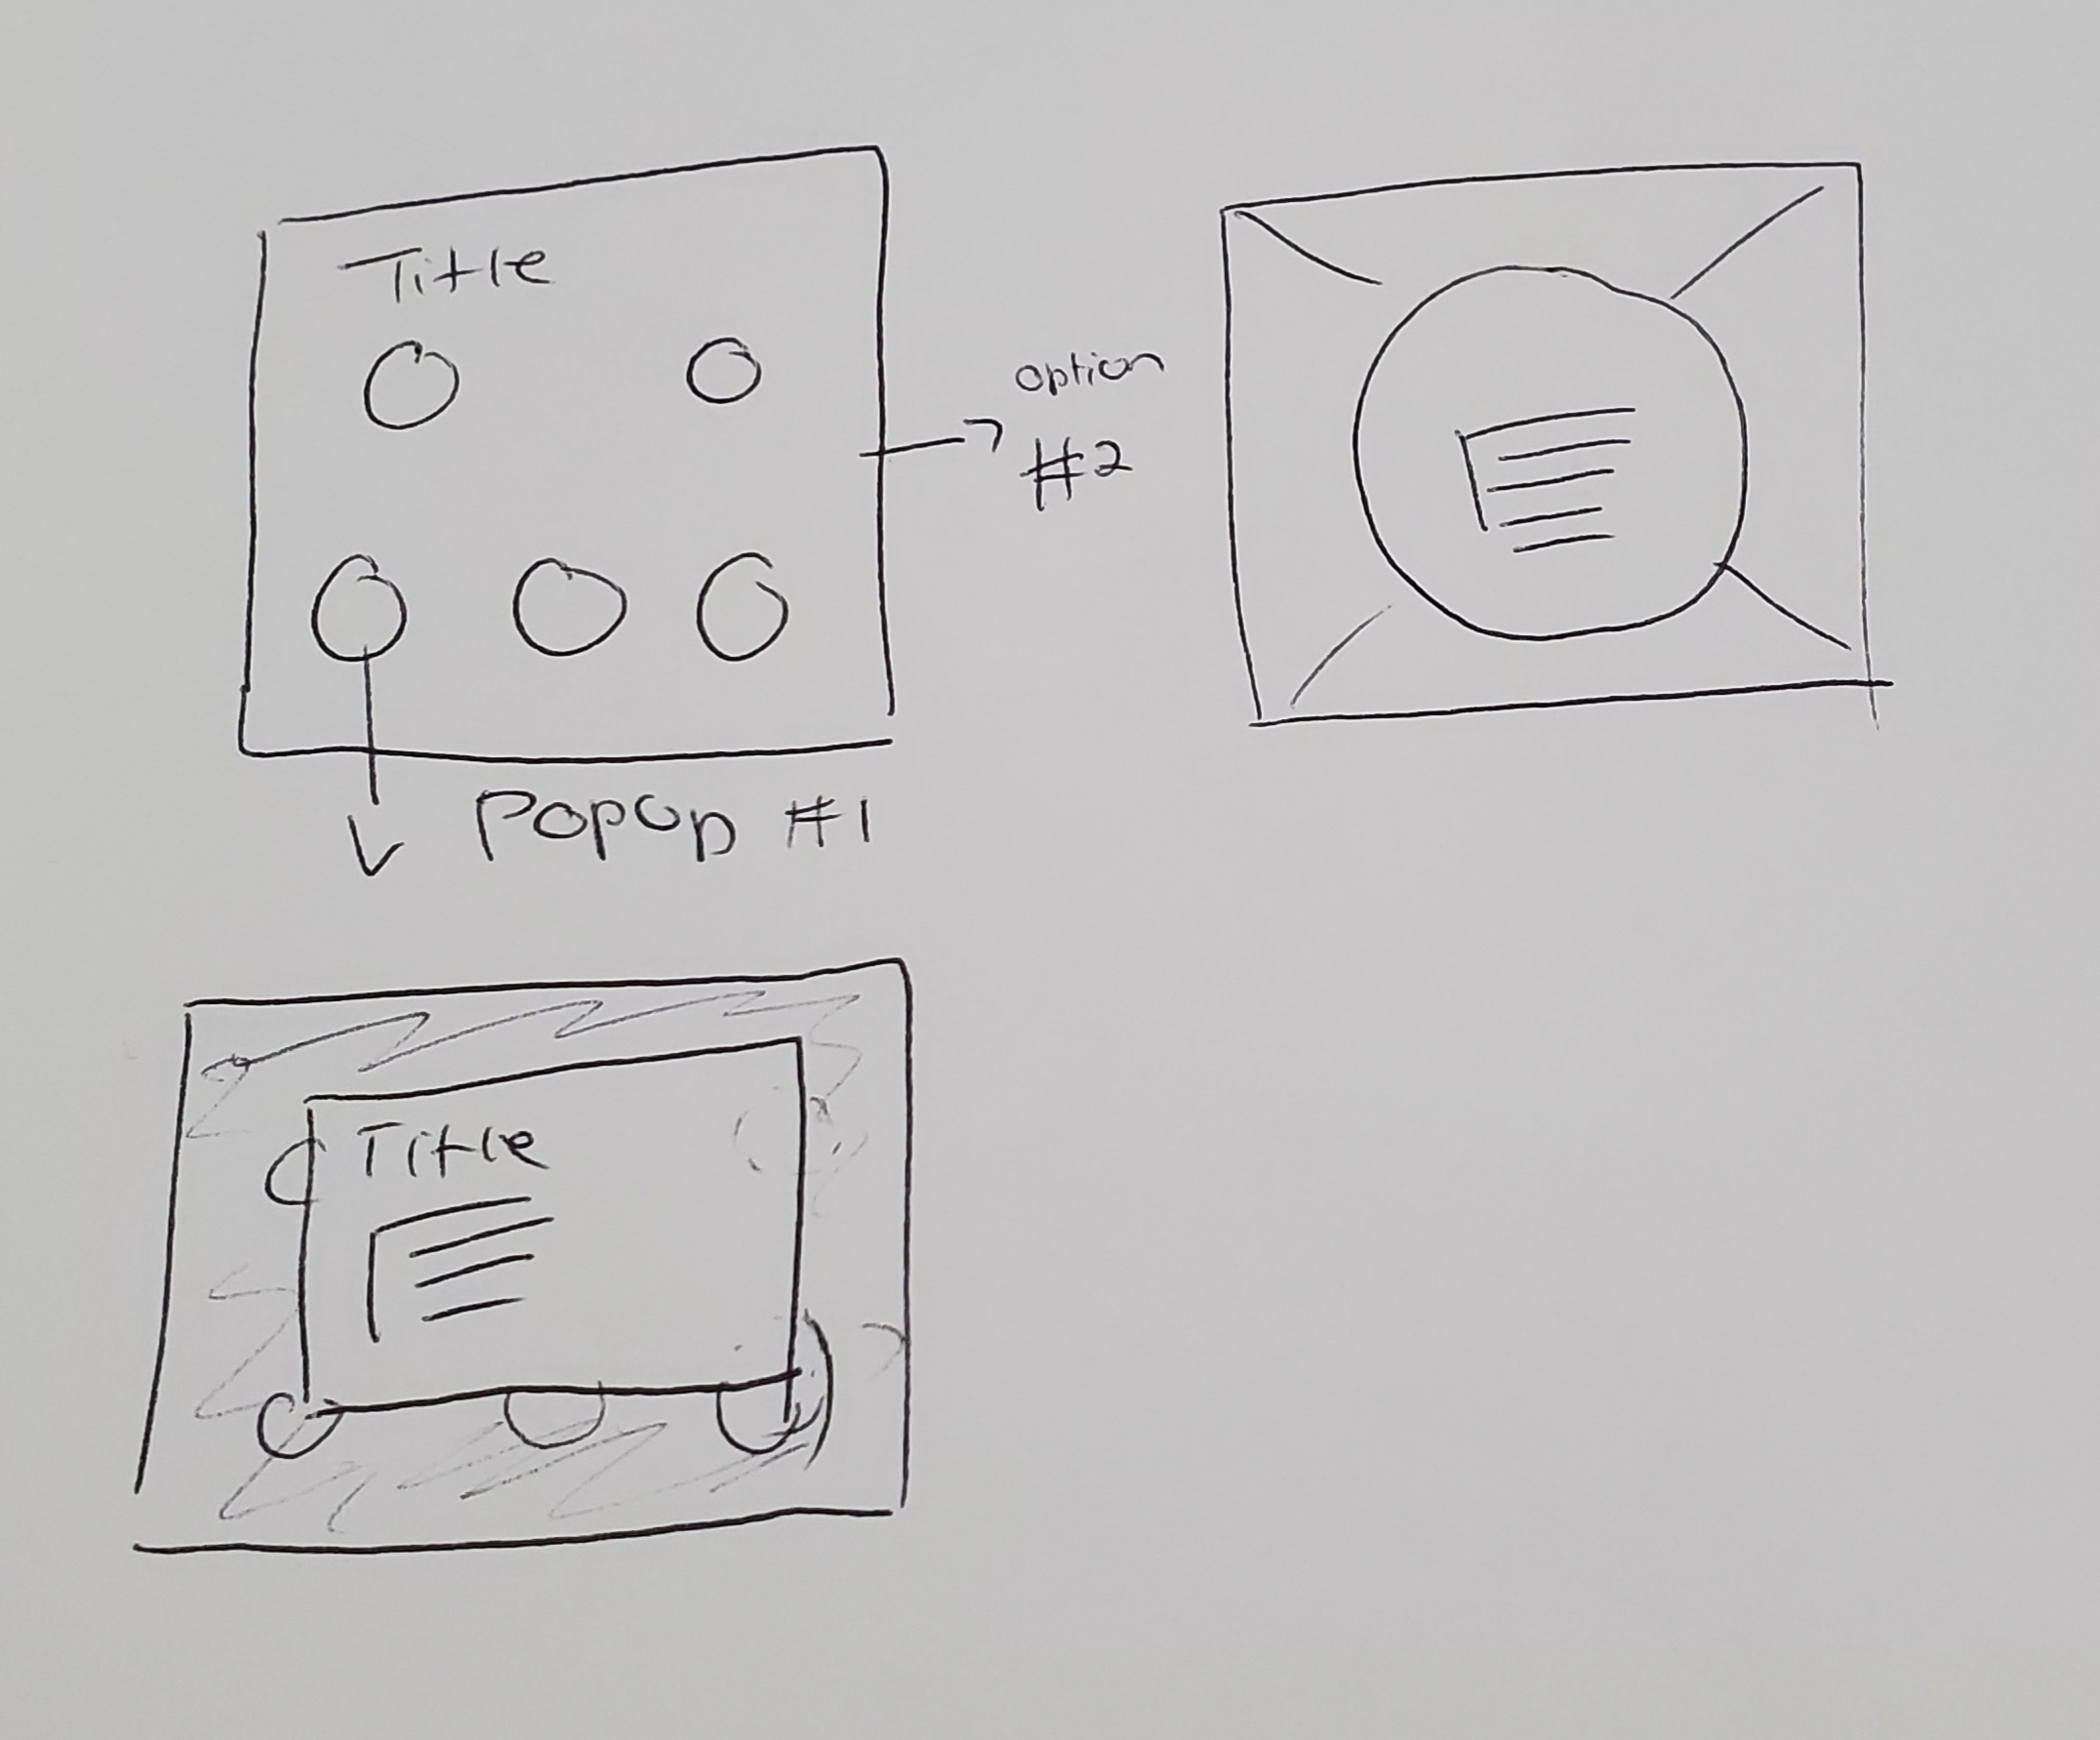 Title
option
#2
Popup #1
Title